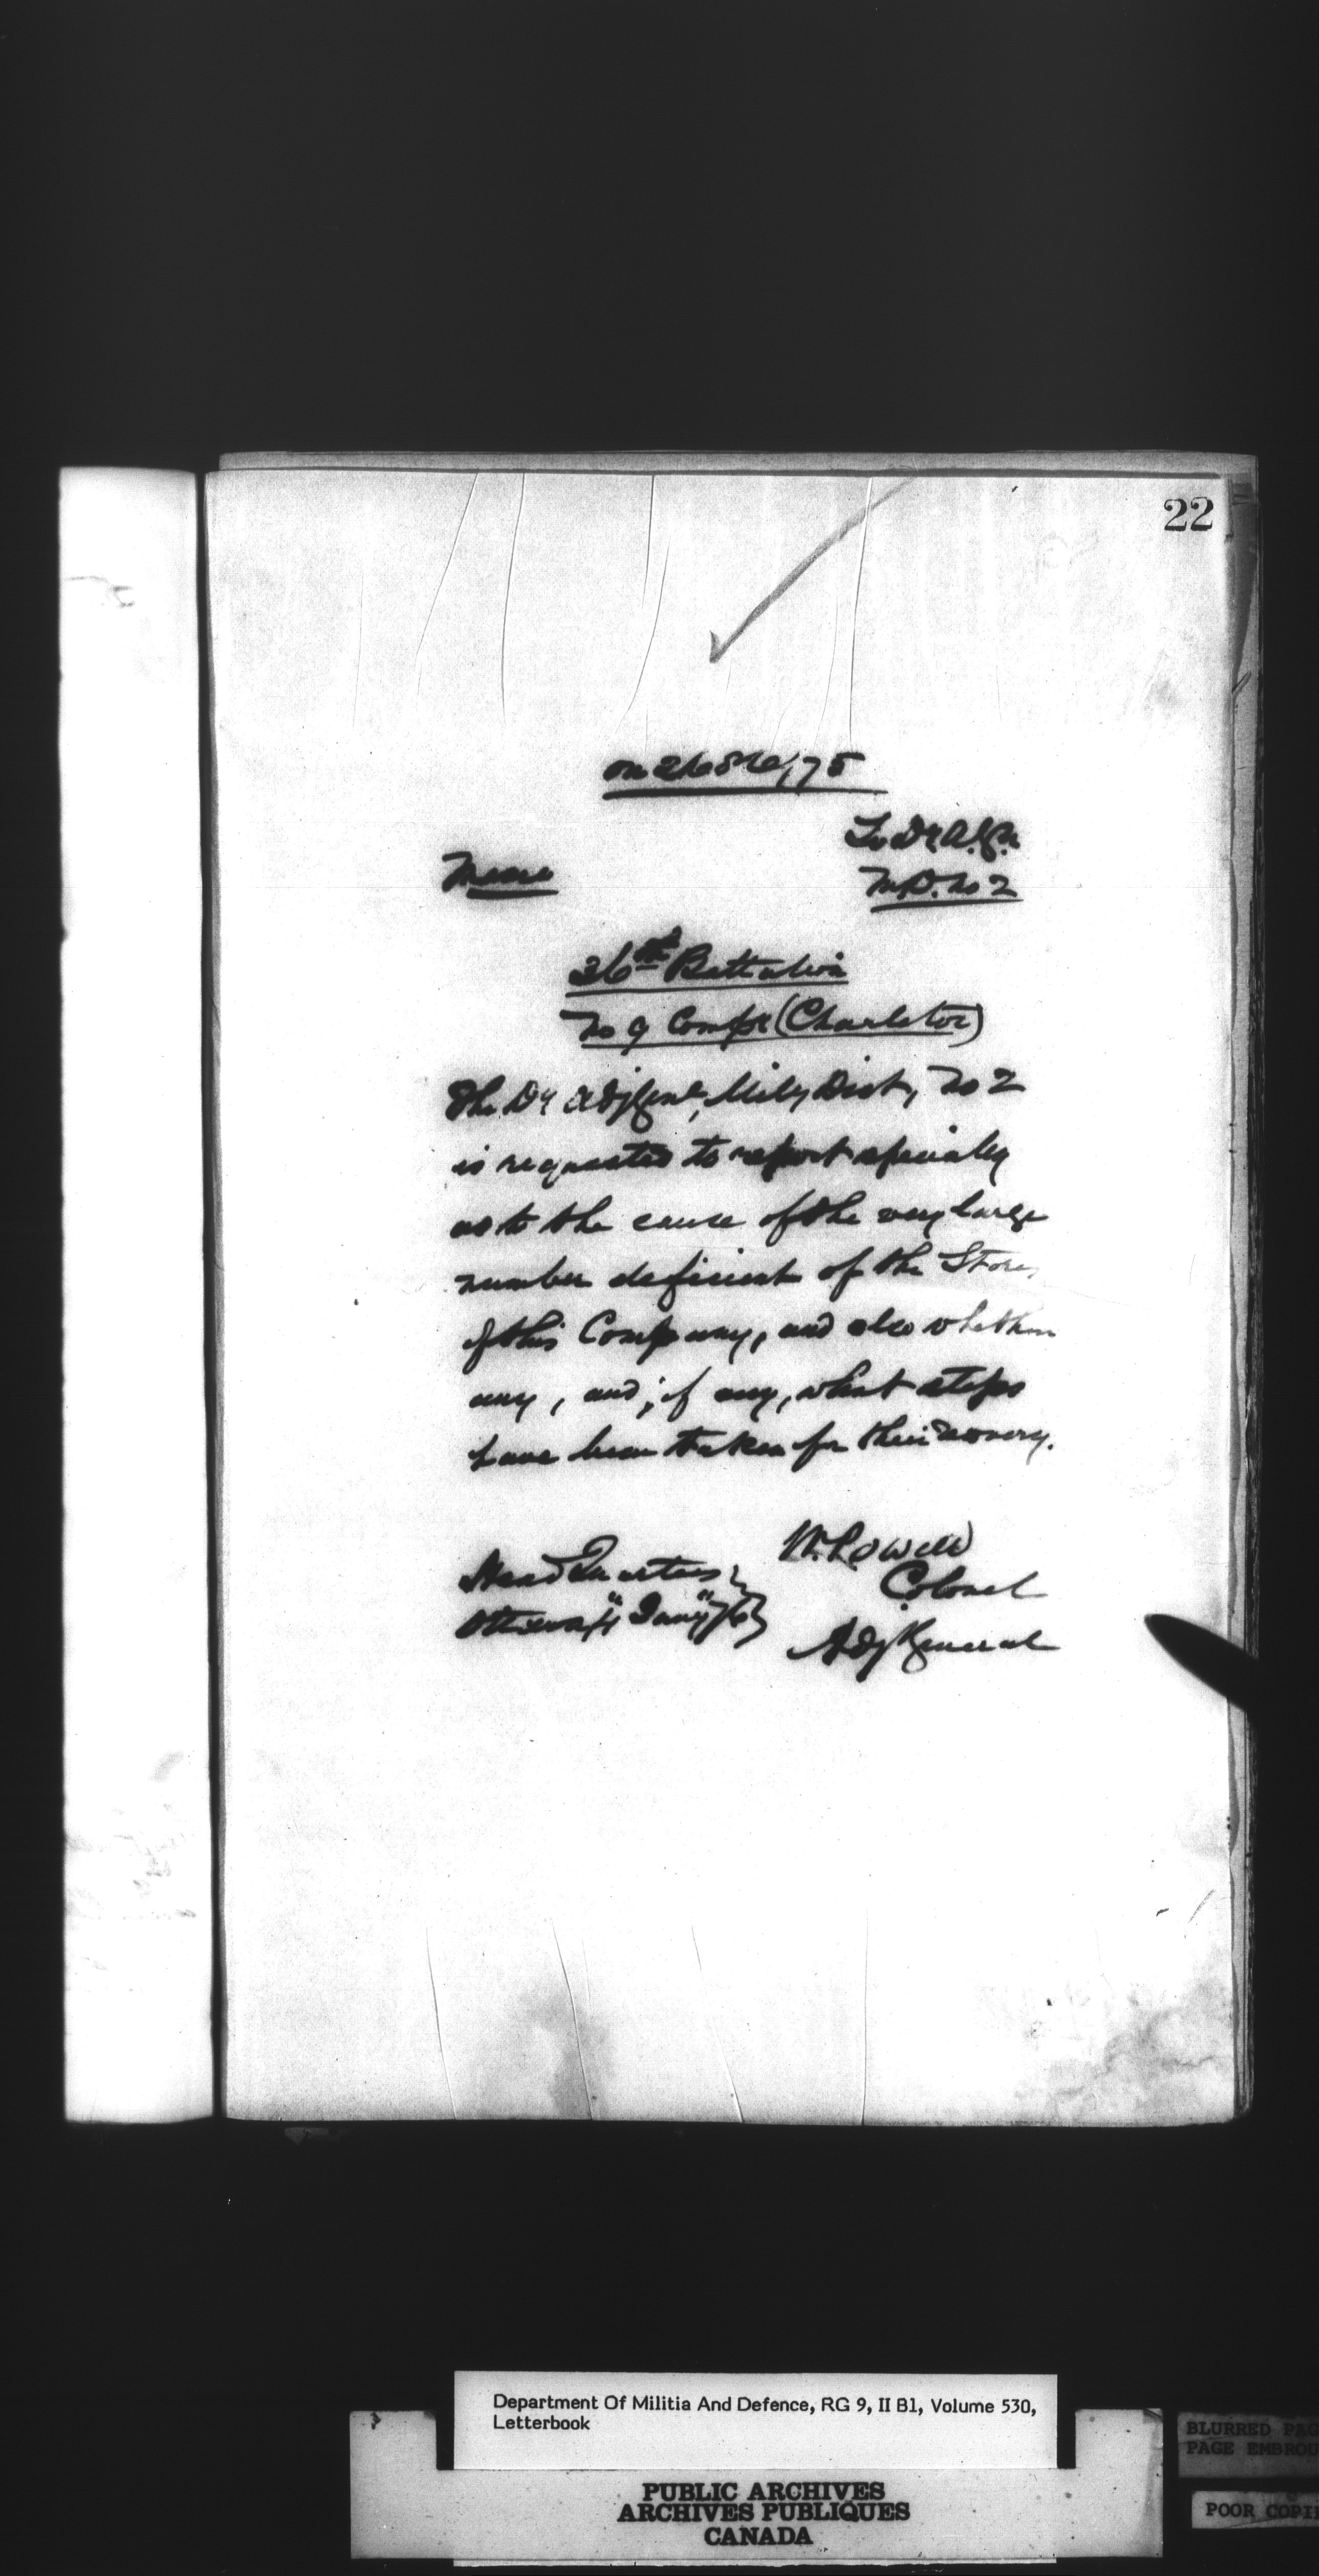 22
on 26816/75
To Dy. A. G.
Memo
M.D. No 2
36th Battalion
No 9 Compy (Charleston)
The Dy Adjt Genl, Mily Dist, No 2
is requested to report specially
as to the cause of the very large
number deficient of the Stores
of this Company, and also whether
any, and, if any, what steps
have been taken for their recovery.
Head Quarters
W. Powell
Colonel
Ottawa 4" Jany" 76
Adj General
Department Of Militia And Defence, RG 9, II B1, Volume 530,
Letterbook
PUBLIC ARCHIVES
ARCHIVES PUBLIQUES
CANADA
BLURRED PAG
PAGE EMBROU
POOR COPI